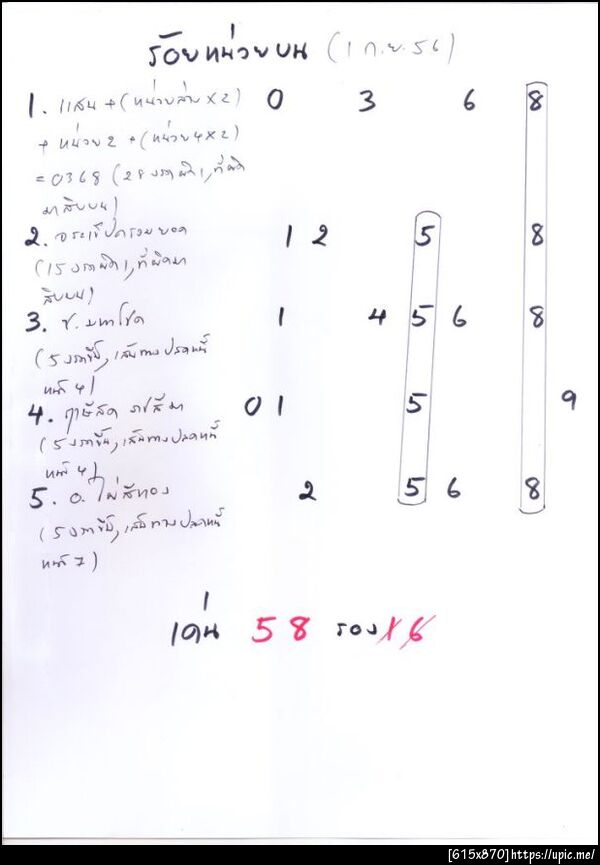 ร้อยหน่วยบน (1 ก.ย. 56)
1. แสน + (หน่วยล่าง x 2) 0 3 6 8
+ หน่วย 2 + (หน่วย 4 x 2)
= 0368 (28 งวดผิด 1, ที่ผิด
มาสิบบน)
2. จระเข้ปดรวมยอด 1 2 5 8
(15 งวดผิด 1, ที่ผิดมา
สิบบน)
3. ช. มหาโชค 1 4 5 6 8
(5 งวดขึ้น, เส้นทางปลดหนี้
หน้า 4)
4. 0 1 5 9
(5 งวดขึ้น, เส้นทางปลดหนี้
หน้า 4)
5. อ. ไผ่สีทอง 2 5 6 8
(5 งวดขึ้น, เส้นทางปลดหนี้
หน้า 7)
เด่น 5 8 รอง 1 6
[615x870]https://upic.me/